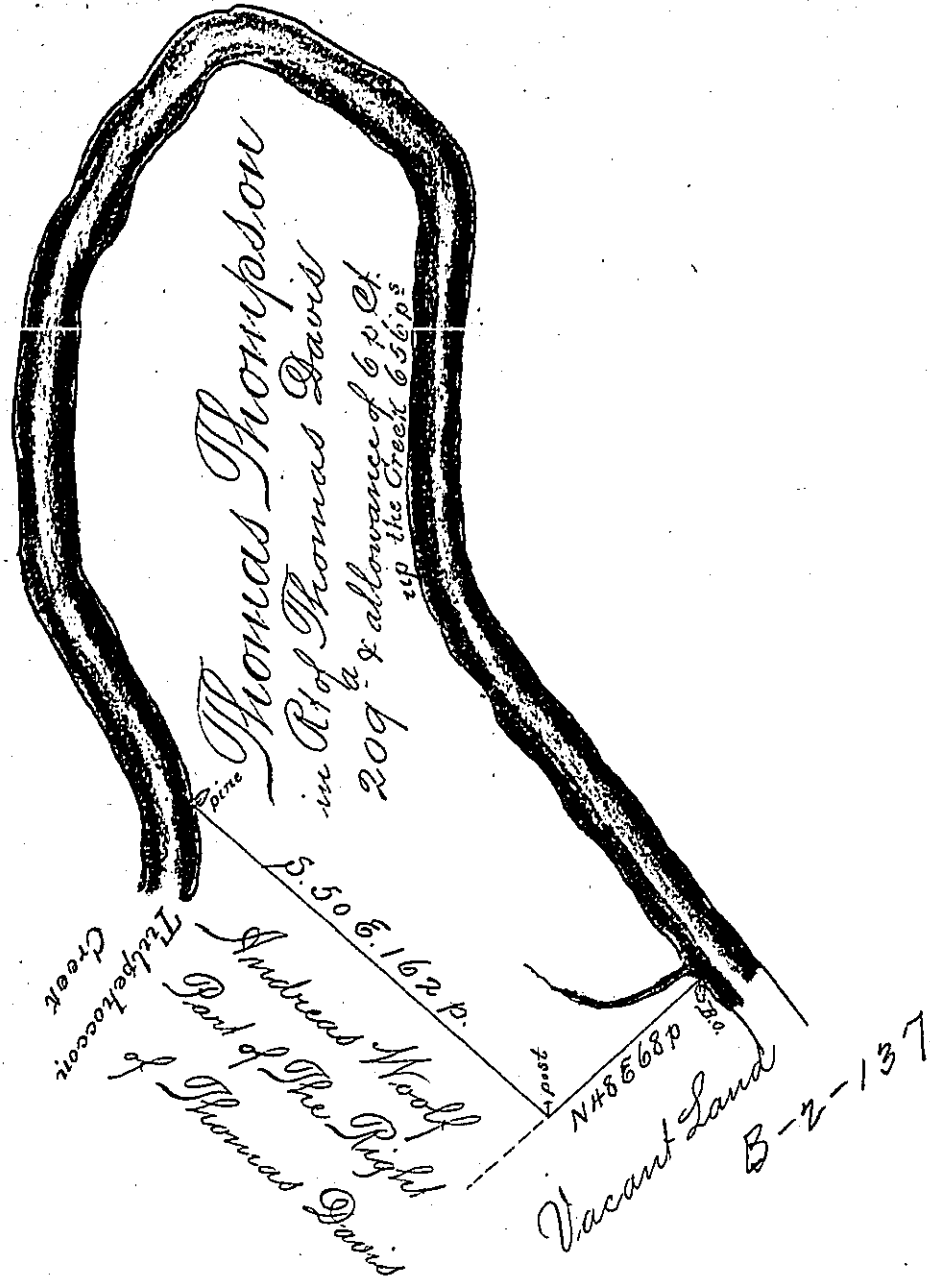 Thomas Thompson
in Rt of Thomas Davis
209 a & allowance of 6 p Ct.
up the Creek 656 ps
pine
S. 50 E. 162 p.
post
N48E68p
B.O.
Tulpehoccon
Creek
Andreas Woolf
Part of The Right
of Thomas Davis
Vacant Land
B-2-137